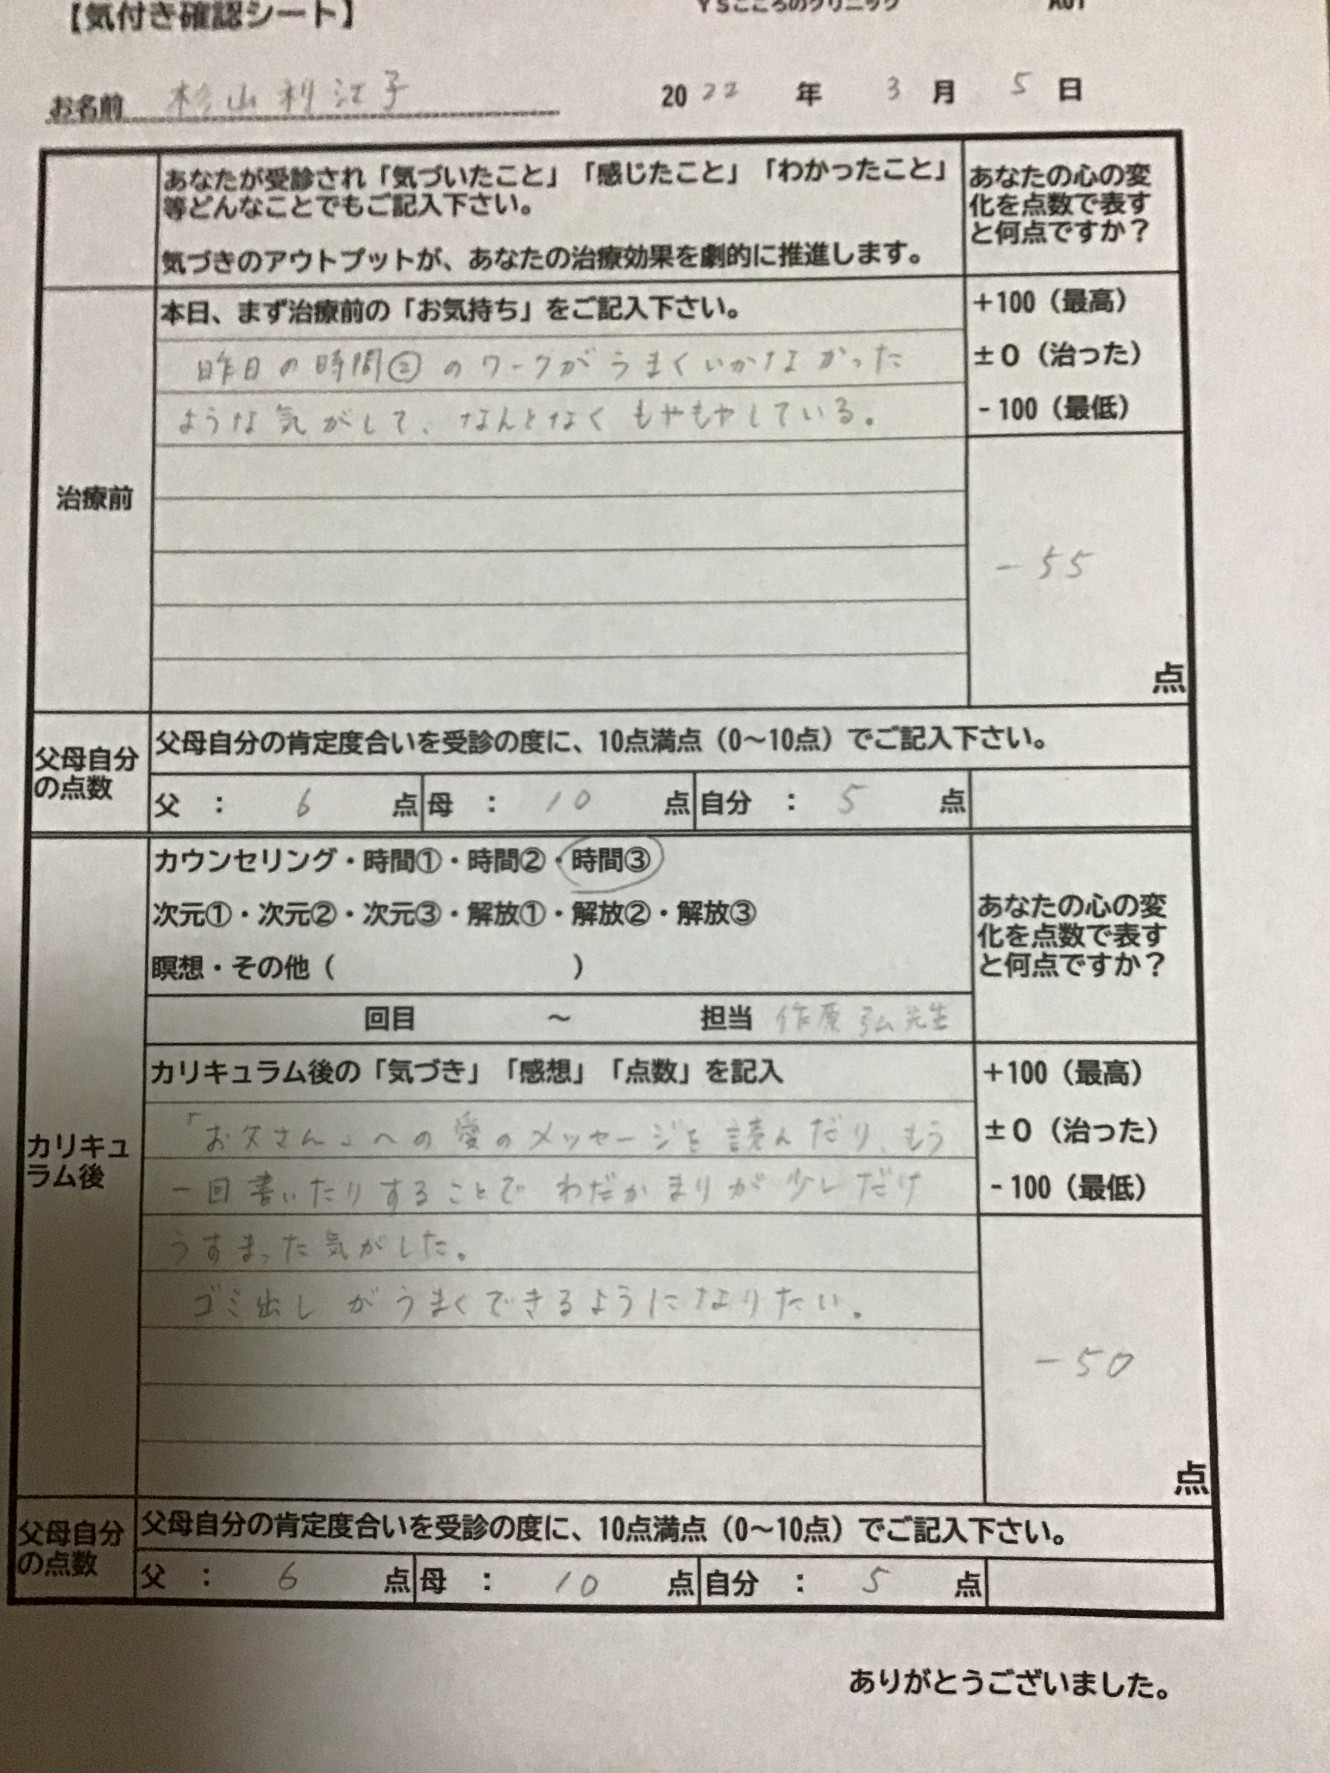 【気付き確認シート】 YSこころのクリニック A01
お名前 杉山利江子 2022年 3月 5日
あなたが受診され「気づいたこと」「感じたこと」「わかったこと」
等どんなことでもご記入下さい。
気づきのアウトプットが、あなたの治療効果を劇的に推進します。
あなたの心の変
化を点数で表す
と何点ですか？
治療前
本日、まず治療前の「お気持ち」をご記入下さい。
昨日の時間②のワークがうまくいかなかった
ような気がして、なんとなくもやもやしている。
+100（最高）
±0（治った）
-100（最低）
-55
点
父母自分
の点数
父母自分の肯定度合いを受診の度に、10点満点（0～10点）でご記入下さい。
父 ： 6 点 母 ： 10 点 自分 ： 5 点
カリキュ
ラム後
カウンセリング・時間①・時間②・時間③
次元①・次元②・次元③・解放①・解放②・解放③
瞑想・その他（ ）
回目 ～ 担当 作原 弘先生
あなたの心の変
化を点数で表す
と何点ですか？
カリキュラム後の「気づき」「感想」「点数」を記入
「お父さん」への愛のメッセージを読んだり、もう
一回書いたりすることでわだかまりが少しだけ
うすまった気がした。
ゴミ出しがうまくできるようになりたい。
+100（最高）
±0（治った）
-100（最低）
-50
点
父母自分
の点数
父母自分の肯定度合いを受診の度に、10点満点（0～10点）でご記入下さい。
父 ： 6 点 母 ： 10 点 自分 ： 5 点
ありがとうございました。